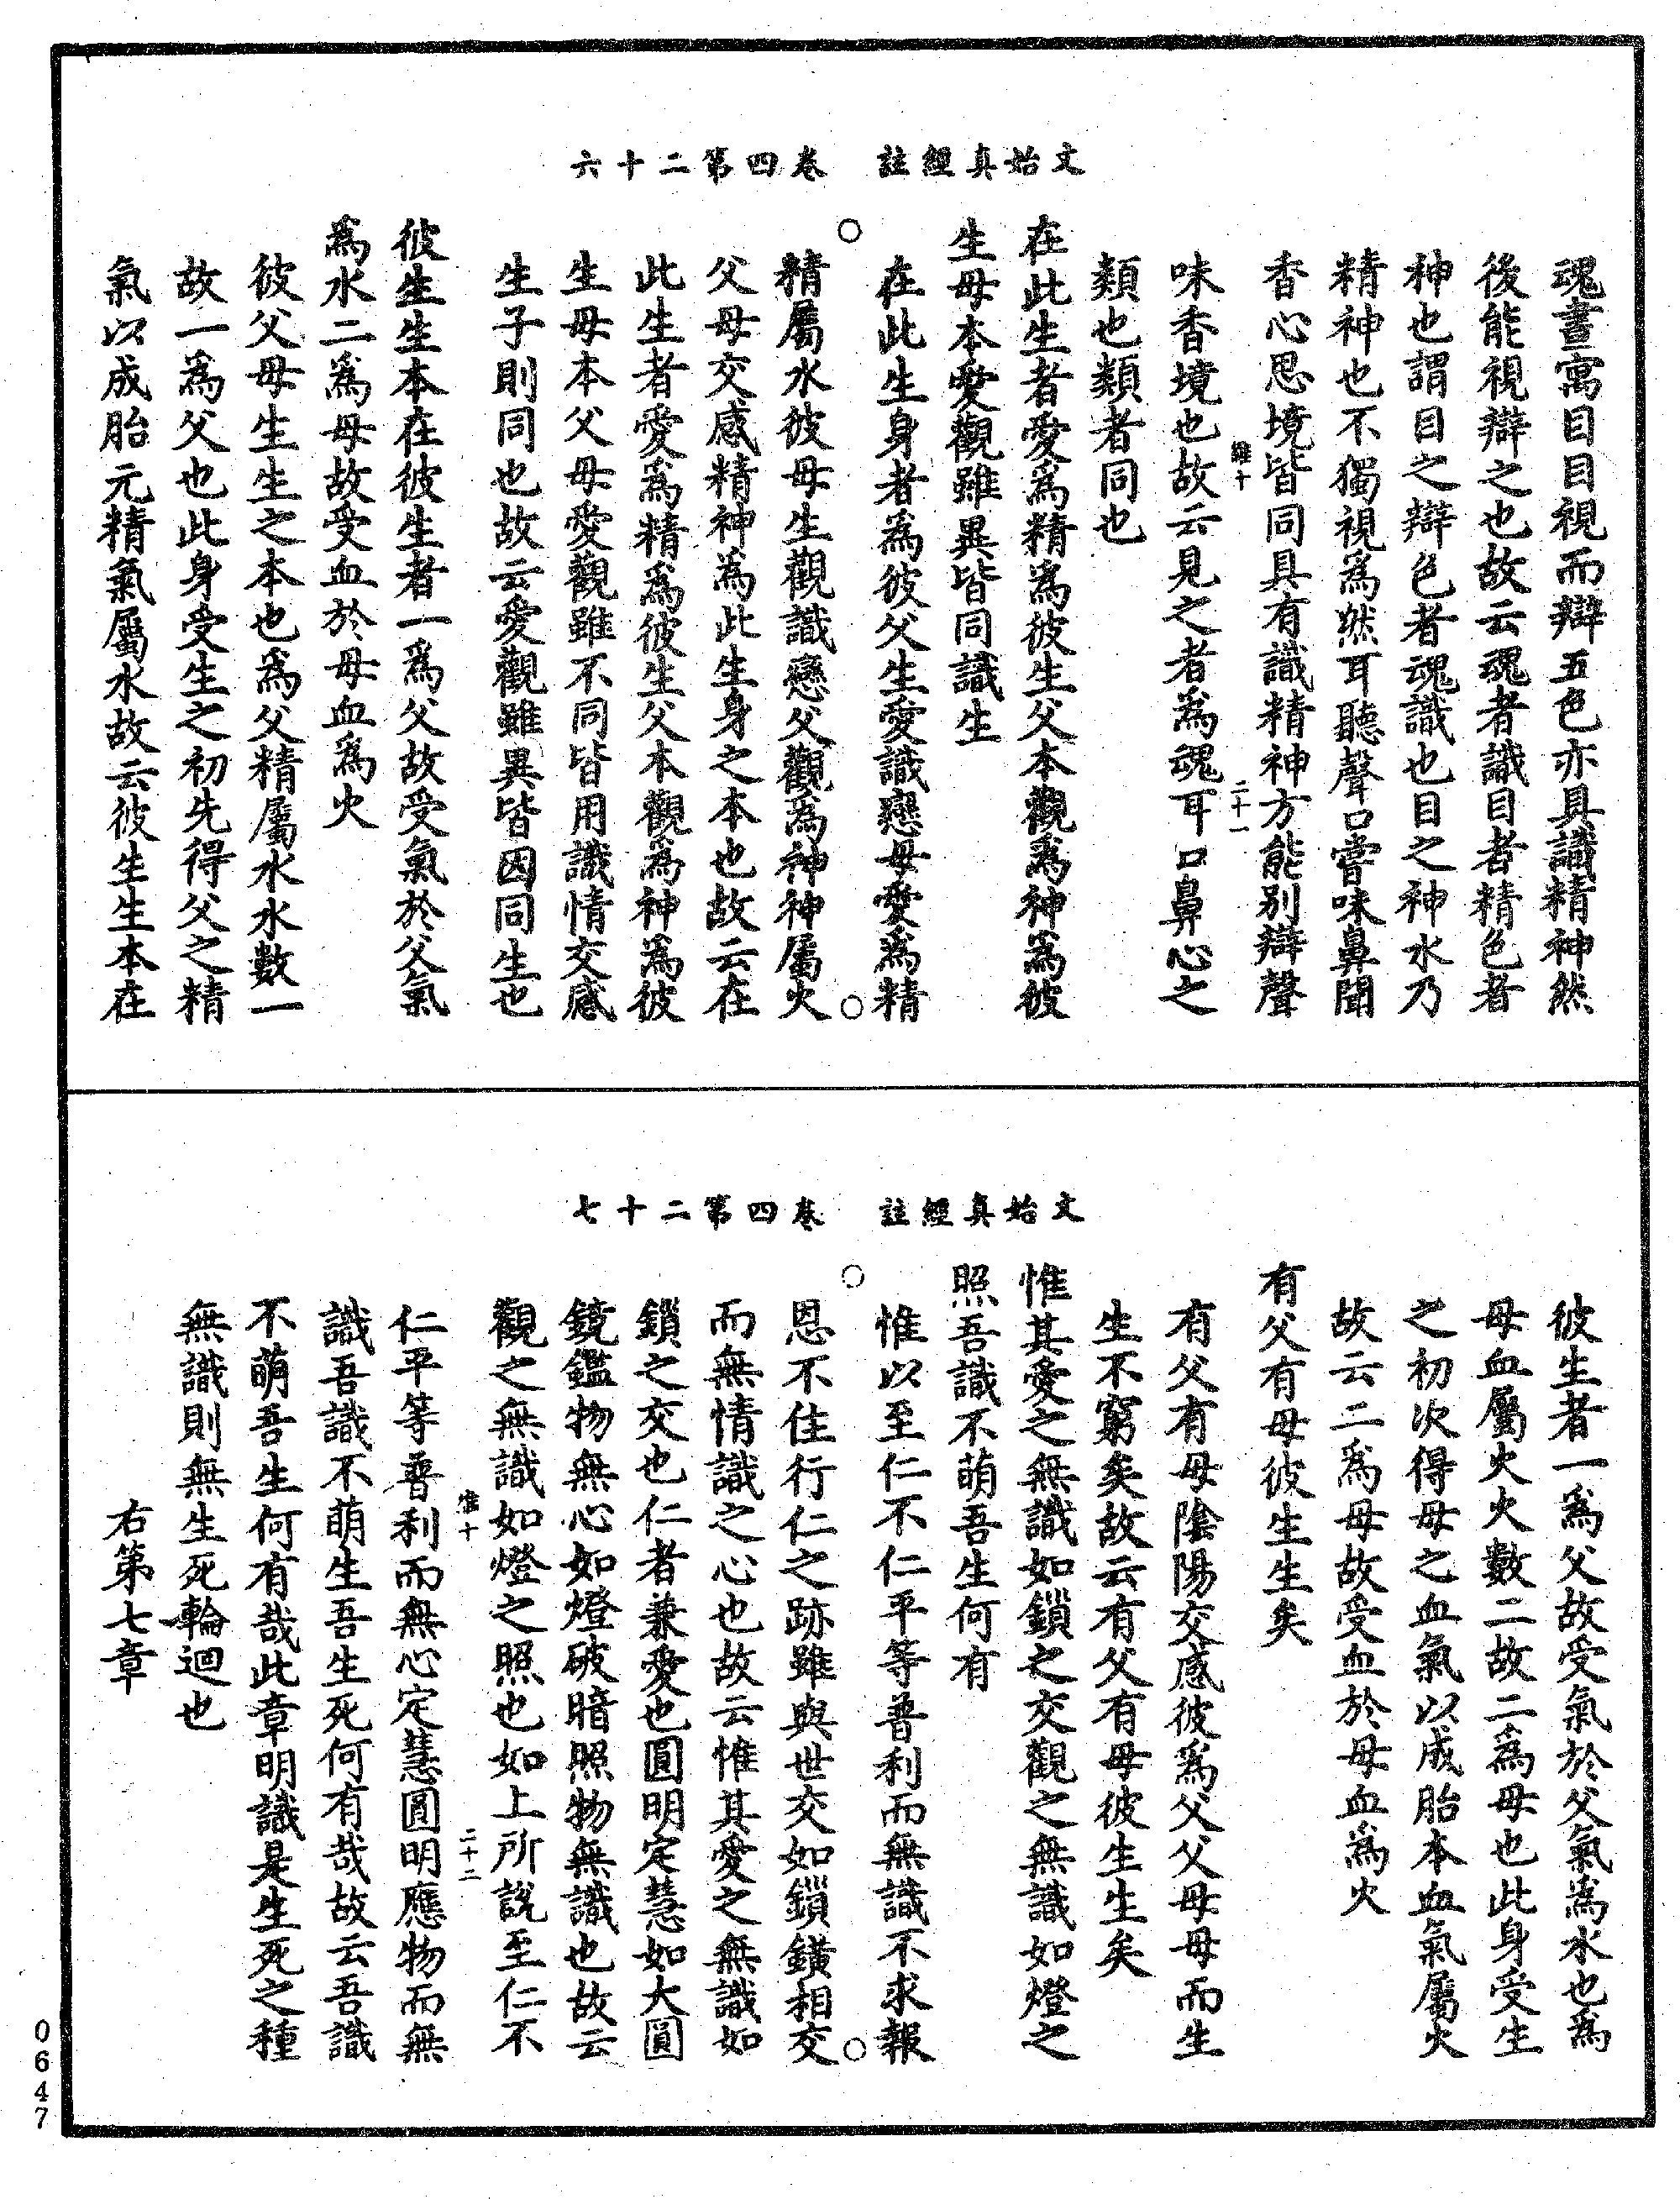 文始真經註　卷四第二十六
魂晝寓目目視而辯五色亦具識精神然
後能視辯之也故云魂者識目者精色者
神也謂目之辯色者魂識也目之神水乃
精神也不獨視爲然耳聽聲口嘗味鼻聞
香心思境皆同具有識精神方能別辯聲
維十　二十一
味香境也故云見之者爲魂耳口鼻心之
類也類者同也
在此生者愛爲精爲彼生父本觀爲神爲彼
生母本愛觀雖異皆同識生
在此生身者爲彼父生愛識戀母愛爲精
○　○
精屬水彼母生觀識戀父觀爲神神屬火
父母交感精神為此生身之本也故云在
此生者愛爲精爲彼生父本觀爲神爲彼
生母本父母愛觀雖不同皆用識情交感
生子則同也故云愛觀雖異皆因同生也
彼生生本在彼生者一爲父故受氣於父氣
爲水二爲母故受血於母血爲火
彼父母生生之本也爲父精屬水水數一
故一爲父也此身受生之初先得父之精
氣以成胎元精氣屬水故云彼生生本在
文始真經註　卷四第二十七
彼生者一爲父故受氣於父氣爲水也爲
母血屬火火數二故二爲母也此身受生
之初次得母之血氣以成胎本血氣屬火
故云二爲母故受血於母血爲火
有父有母彼生生矣
有父有母陰陽交感彼爲父父母母而生
生不窮矣故云有父有母彼生生矣
惟其愛之無識如鎖之交觀之無識如燈之
照吾識不萌吾生何有
惟以至仁不仁平等普利而無識不求報
○　○
恩不住行仁之跡雖與世交如鎖鐄相交
而無情識之心也故云惟其愛之無識如
鎖之交也仁者兼愛也圓明定慧如大圓
鏡鑑物無心如燈破暗照物無識也故云
觀之無識如燈之照也如上所説至仁不
維十　二十二
仁平等普利而無心定慧圓明應物而無
識吾識不萌生吾生死何有哉故云吾識
不萌吾生何有哉此章明識是生死之種
無識則無生死輪迴也
右第七章
0647